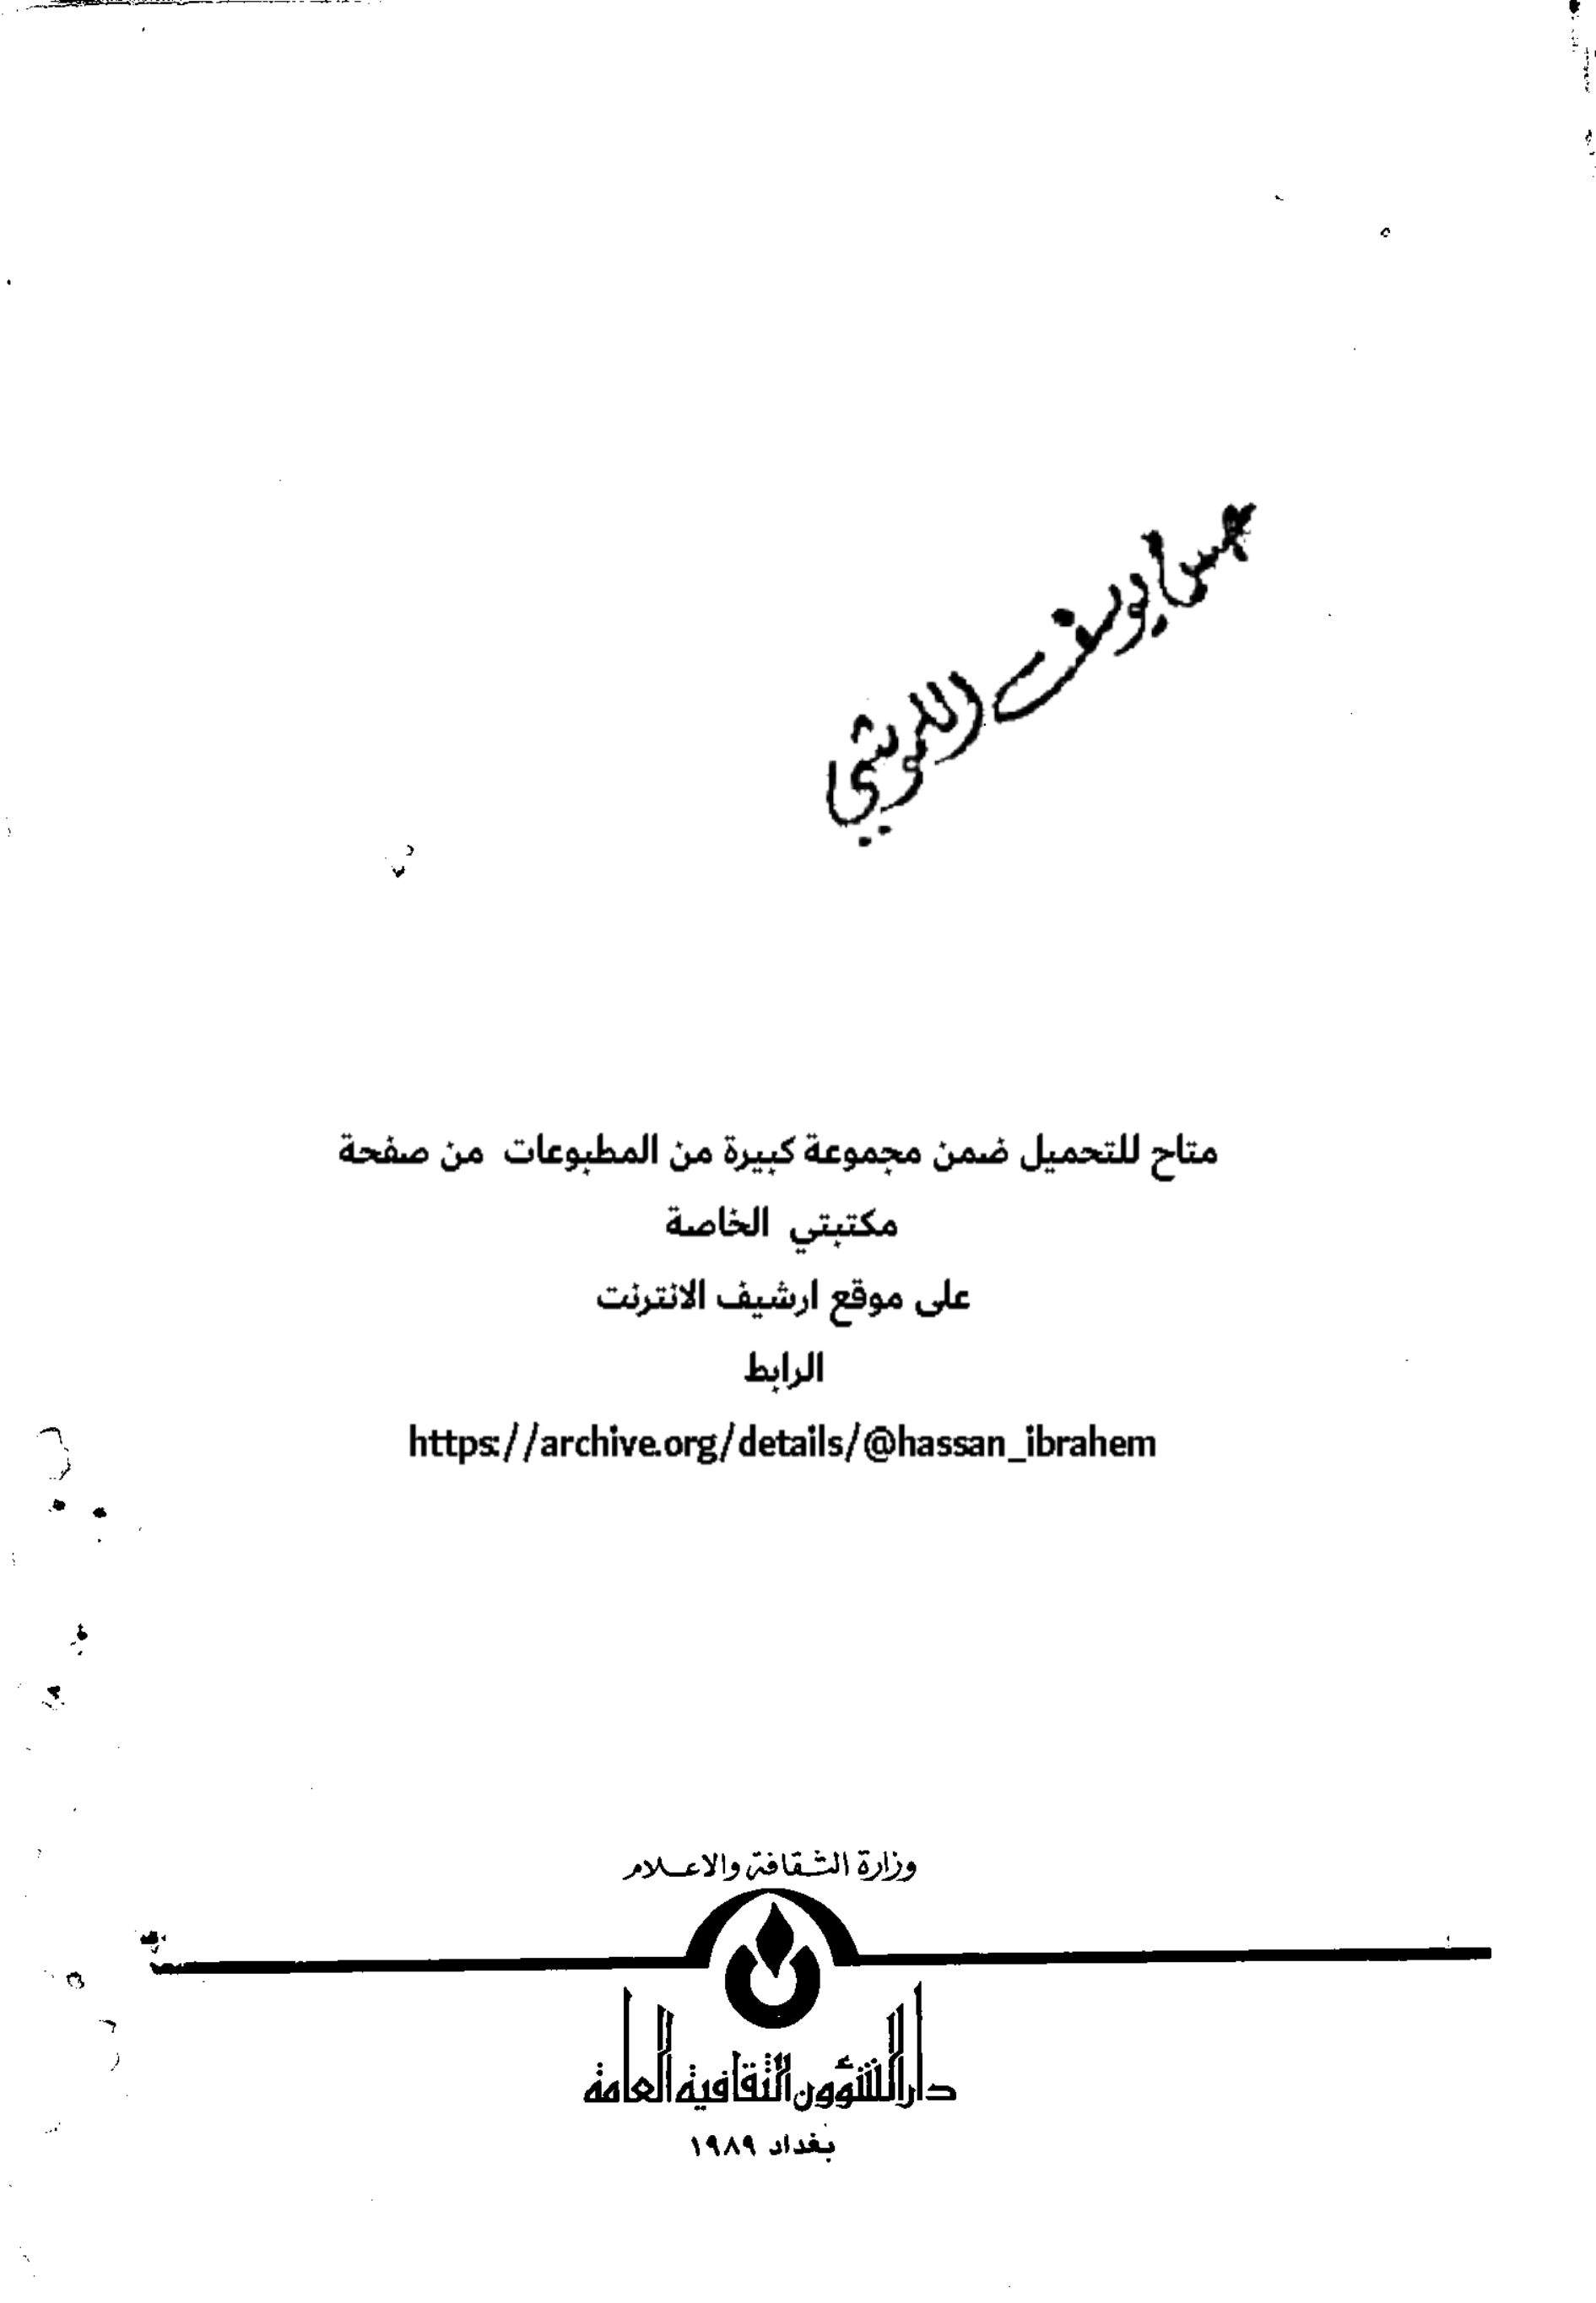 يوسف
متاح للتحميل ضمن مجموعة كبيرة من المطبوعات من صفحة
مكتبتي الخاصة
على موقع ارشيف الانترنت
الرابط
https://archive.org/details/@hassan_ibrahem
وزارة الثقافة والاعلام
دار الشؤون الثقافية العامة
بغداد ١٩٨٩